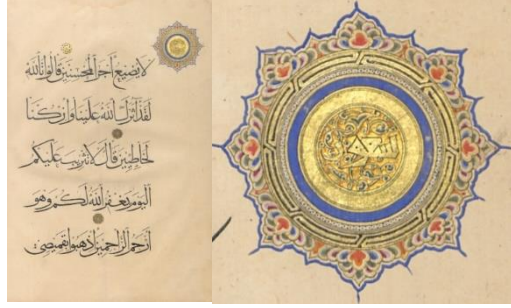 لا يضيع أجر المحسنين قالوا تالله
لقد آثرك الله علينا وإن كنا
لخاطئين قال لا تثريب عليكم
اليوم يغفر الله لكم وهو
أرحم الراحمين اذهبوا بقميصي